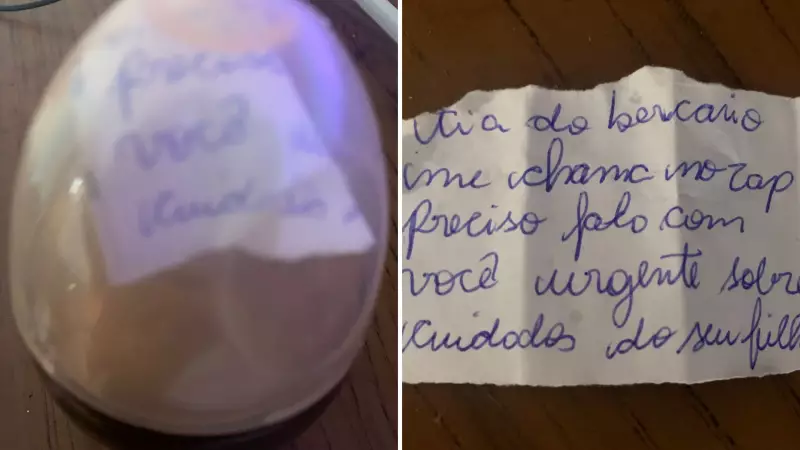 preciso
você
cuidados
tia do bercario
me chama no zap
Preciso falo com
você urgente sobre
cuidados do seu filh